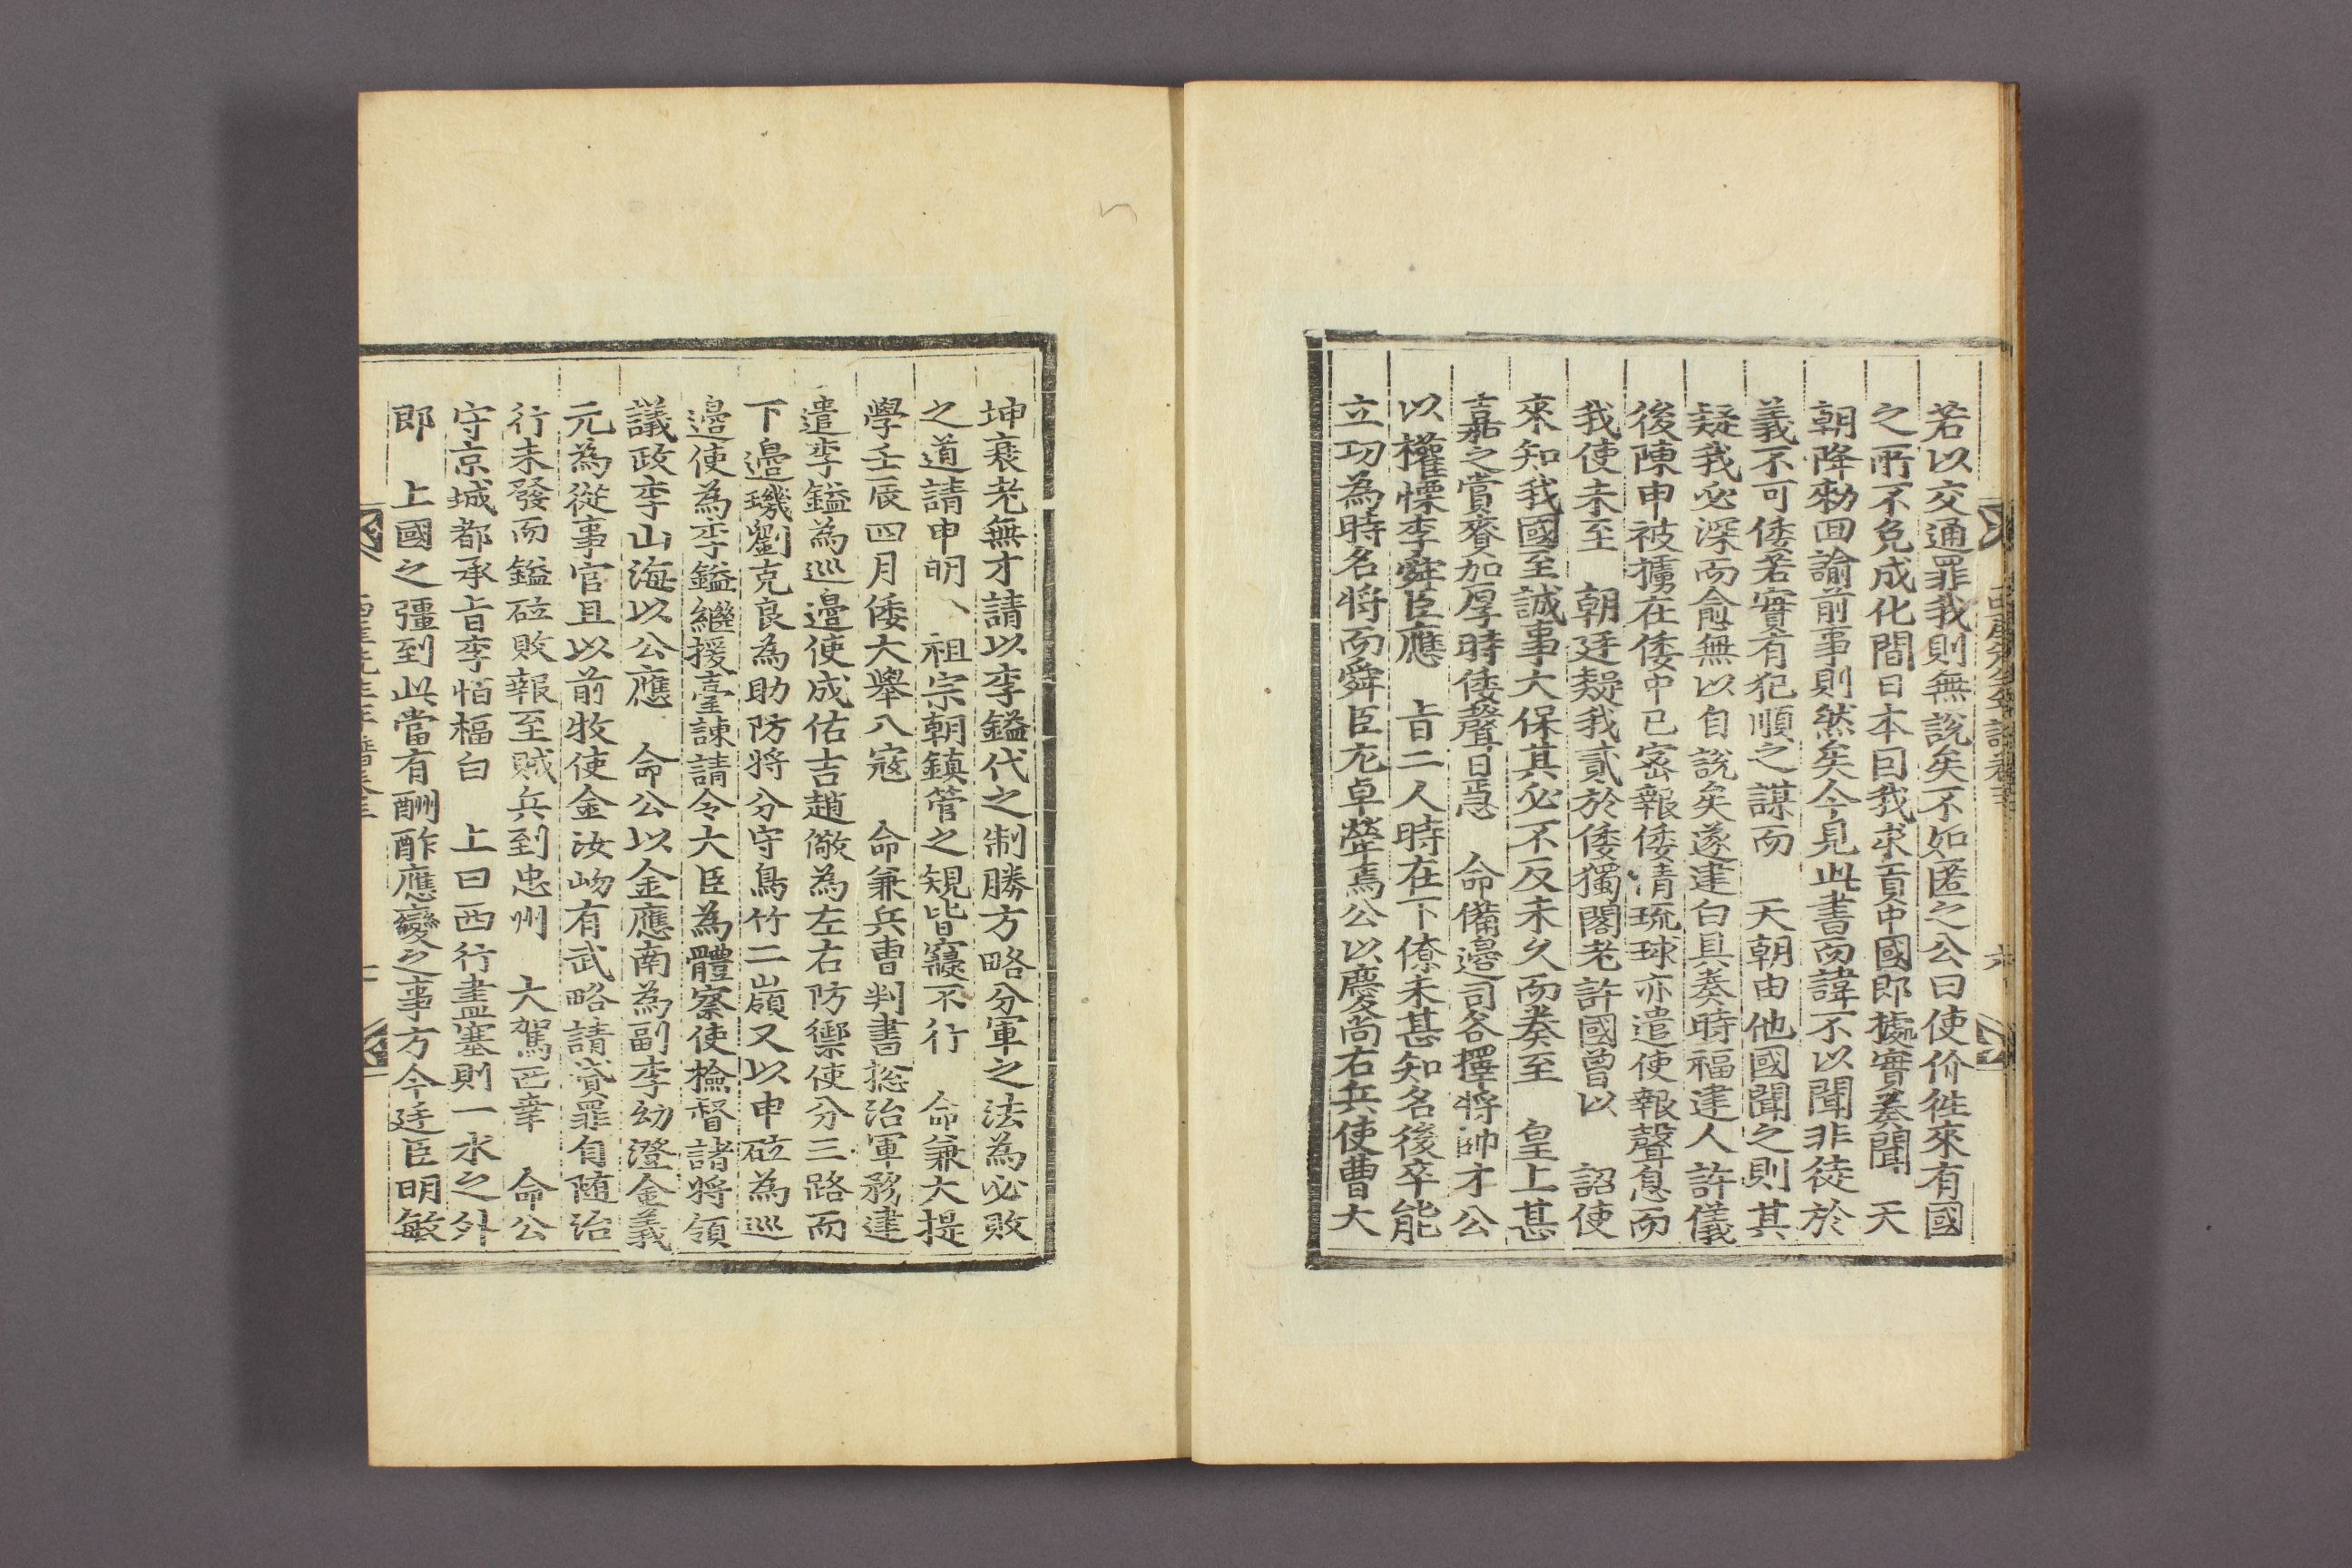 若以交通罪我則無說矣不如匿之公曰使价徃來有國
之所不免成化間日本因我求貢中國即據實奏聞 天
朝降勑囬諭前事則然矣今見此書而諱不以聞非徒於
義不可倭若實有犯順之謀而 天朝由他國聞之則其
疑我必深而愈無以自說矣遂建白具奏時福建人許儀
後陳申被擄在倭中已密報倭情琉球亦遣使報聲息而
我使未至 朝廷疑我貳於倭獨閣老許國曾以 詔使
來知我國至誠事大保其必不反未久而奏至 皇上甚
嘉之賞賚加厚時倭聲日急 命備邊司各擇將帥才公
以權慄李舜臣應 旨二人時在下僚未甚知名後卒能
立功為時名將而舜臣尤卓犖焉公以慶尚右兵使曹大
坤衰老無才請以李鎰代之制勝方略分軍之法為必敗
之道請申明 祖宗朝鎮管之規皆寢不行 命兼大提
學壬辰四月倭大擧入寇 命兼兵曹判書捴治軍務建
遣李鎰為巡邊使成佑吉趙儆為左右防禦使分三路而
下邉璣劉克良為助防將分守鳥竹二嶺又以申砬為巡
邉使為李鎰繼援臺諫請令大臣為體察使檢督諸將領
議政李山海以公應 命公以金應南為副李幼澄金義
元為從事官且以前牧使金汝岉有武略請貸罪自随治
行未發而鎰砬敗報至賊兵到忠州 大駕西幸 命公
守京城都承旨李恒福白 上曰西行盡塞則一水之外
郎 上國之彊到此當有酬酢應變之事方今廷臣明敏
六